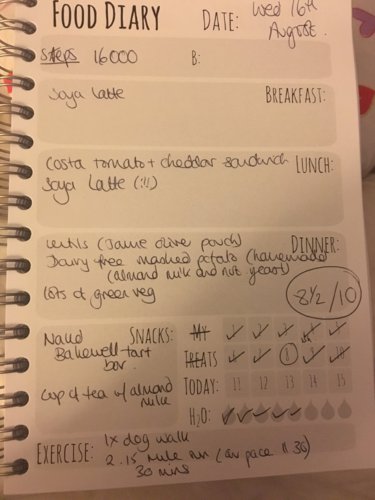 FOOD DIARY DATE: Wed 16th
August.
Steps 16000 B:
Soya latte BREAKFAST:
Costa tomato + cheddar sandwich LUNCH:
Soya Latte (!!!)
Lentils (Jamie Olive pouch) DINNER:
Dairy free mashed potato (homemade
(almond milk and nut yeast)
lots of green veg
8 1/2 /10
Nakd SNACKS:
Bakewell tart
bar.
Cup of tea w/ almond
milk
MY
TREATS
TODAY: 11 12 13 14 15
H2O:
EXERCISE: 1x dog walk
2.15 mile run (av pace 11.30)
30 mins